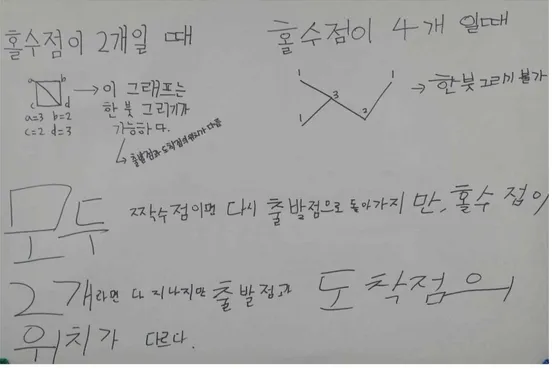 홀수점이 2개일 때
a b
c d
a=3 b=2
c=2 d=3
→ 이 그래프는
한 붓 그리기가
가능하다.
↳ 출발점과 도착점의 위치가 다름
홀수점이 4개 일때
1 3 1
1 2
→ 한붓그리기 불가
모두 짝수점이면 다시 출발점으로 돌아가지 만, 홀수 점이
2 개라면 다 지나지만 출발점과 도착점의
위치가 다르다.